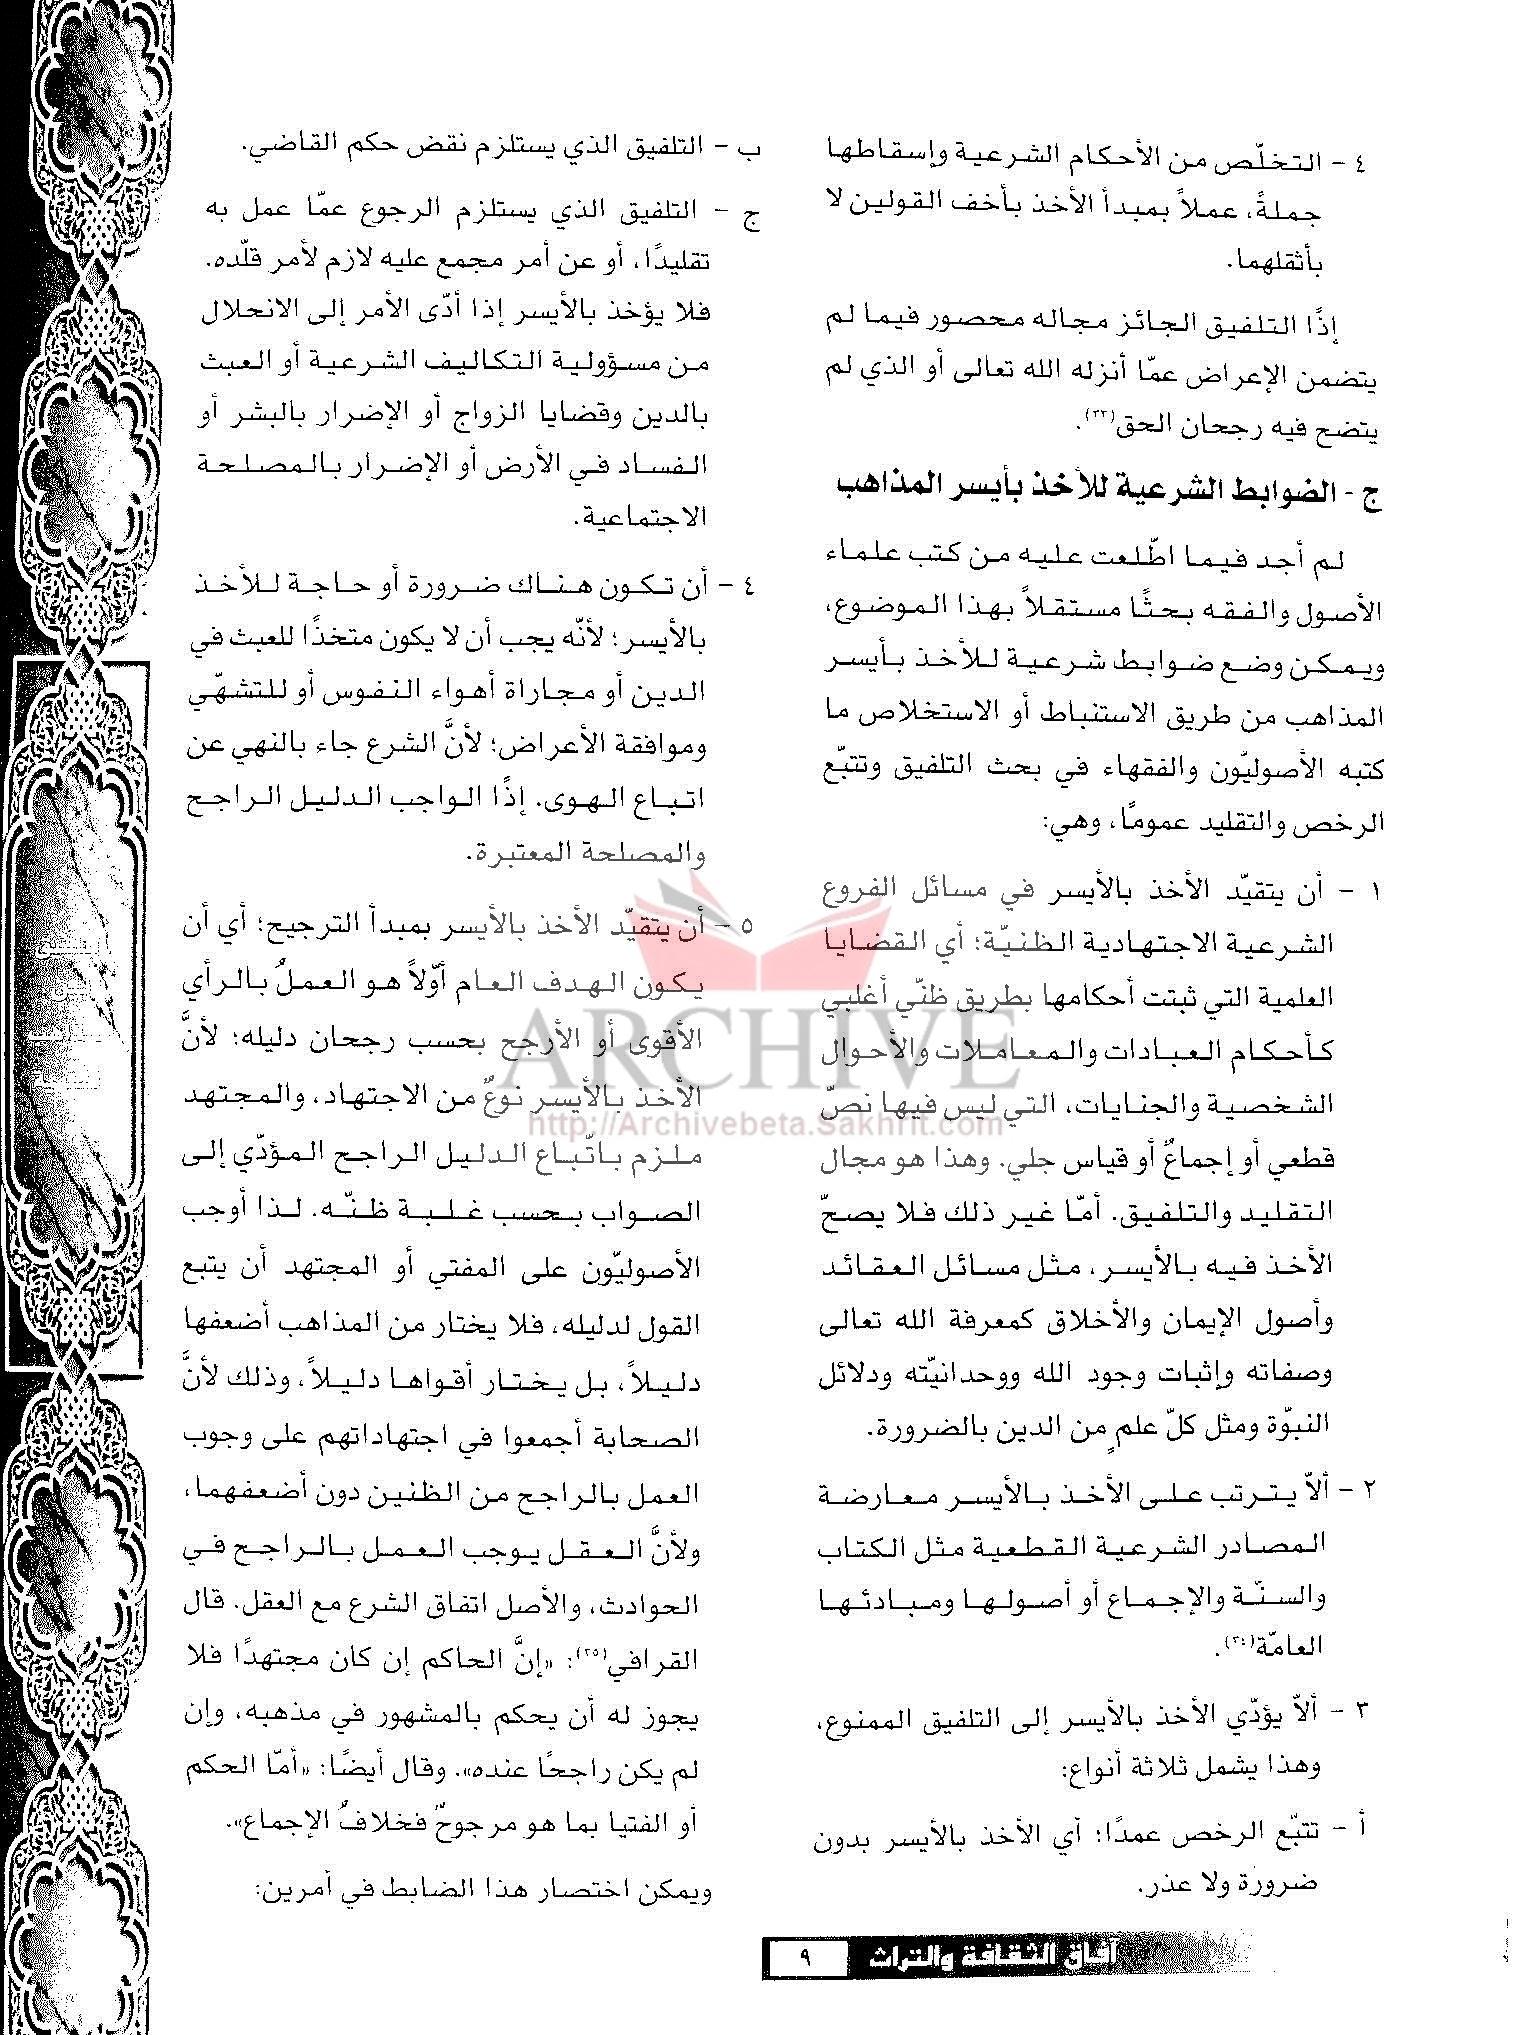 ٤ - التخلّص من الأحكام الشرعية وإسقاطها
جملةً، عملاً بمبدأ الأخذ بأخف القولين لا
بأثقلهما.
إذًا التلفيق الجائز مجاله محصور فيما لم
يتضمن الإعراض عمّا أنزله الله تعالى أو الذي لم
يتضح فيه رجحان الحق(٣٣).
ج - الضوابط الشرعية للأخذ بأيسر المذاهب
لم أجد فيما اطّلعت عليه من كتب علماء
الأصول والفقه بحثًا مستقلاً بهذا الموضوع،
ويمكن وضع ضوابط شرعية للأخذ بأيسر
المذاهب من طريق الاستنباط أو الاستخلاص ما
كتبه الأصوليّون والفقهاء في بحث التلفيق وتتبّع
الرخص والتقليد عمومًا، وهي:
١ - أن يتقيّد الأخذ بالأيسر في مسائل الفروع
الشرعية الاجتهادية الظنيّة؛ أي القضايا
العلمية التي ثبتت أحكامها بطريق ظنّي أغلبي
كأحكام العبادات والمعاملات والأحوال
الشخصية والجنايات، التي ليس فيها نصّ
قطعي أو إجماعٌ أو قياس جلي. وهذا هو مجال
التقليد والتلفيق. أمّا غير ذلك فلا يصحّ
الأخذ فيه بالأيسر، مثل مسائل العقائد
وأصول الإيمان والأخلاق كمعرفة الله تعالى
وصفاته وإثبات وجود الله ووحدانيّته ودلائل
النبوّة ومثل كلّ علمٍ من الدين بالضرورة.
٢ - ألاّ يترتب على الأخذ بالأيسر معارضة
المصادر الشرعية القطعية مثل الكتاب
والسنّة والإجماع أو أصولها ومبادئها
العامّة(٣٤).
٣ - ألاّ يؤدّي الأخذ بالأيسر إلى التلفيق الممنوع،
وهذا يشمل ثلاثة أنواع:
أ - تتبّع الرخص عمدًا؛ أي الأخذ بالأيسر بدون
ضرورة ولا عذر.
ب - التلفيق الذي يستلزم نقض حكم القاضي.
ج - التلفيق الذي يستلزم الرجوع عمّا عمل به
تقليدًا، أو عن أمر مجمع عليه لازم لأمر قلّده.
فلا يؤخذ بالأيسر إذا أدّى الأمر إلى الانحلال
من مسؤولية التكاليف الشرعية أو العبث
بالدين وقضايا الزواج أو الإضرار بالبشر أو
الفساد في الأرض أو الإضرار بالمصلحة
الاجتماعية.
٤ - أن تكون هناك ضرورة أو حاجة للأخذ
بالأيسر؛ لأنّه يجب أن لا يكون متخذًا للعبث في
الدين أو مجاراة أهواء النفوس أو للتشهّي
وموافقة الأعراض؛ لأنَّ الشرع جاء بالنهي عن
اتباع الهوى. إذًا الواجب الدليل الراجح
والمصلحة المعتبرة.
٥ - أن يتقيّد الأخذ بالأيسر بمبدأ الترجيح؛ أي أن
يكون الهدف العام أوّلاً هو العملُ بالرأي
الأقوى أو الأرجح بحسب رجحان دليله؛ لأنَّ
الأخذ بالأيسر نوعٌ من الاجتهاد، والمجتهد
ملزم باتّباع الدليل الراجح المؤدّي إلى
الصواب بحسب غلبة ظنّه. لذا أوجب
الأصوليّون على المفتي أو المجتهد أن يتبع
القول لدليله، فلا يختار من المذاهب أضعفها
دليلاً، بل يختار أقواها دليلاً، وذلك لأنَّ
الصحابة أجمعوا في اجتهاداتهم على وجوب
العمل بالراجح من الظنين دون أضعفهما،
ولأنَّ العقل يوجب العمل بالراجح في
الحوادث، والأصل اتفاق الشرع مع العقل. قال
القرافي(٣٥): «إنَّ الحاكم إن كان مجتهدًا فلا
يجوز له أن يحكم بالمشهور في مذهبه، وإن
لم يكن راجحًا عنده». وقال أيضًا: «أمّا الحكم
أو الفتيا بما هو مرجوحٌ فخلافُ الإجماع».
ويمكن اختصار هذا الضابط في أمرين:
ARCHIVE
http://Archivebeta.Sakhrit.com
آفاق الثقافة والتراث ٩